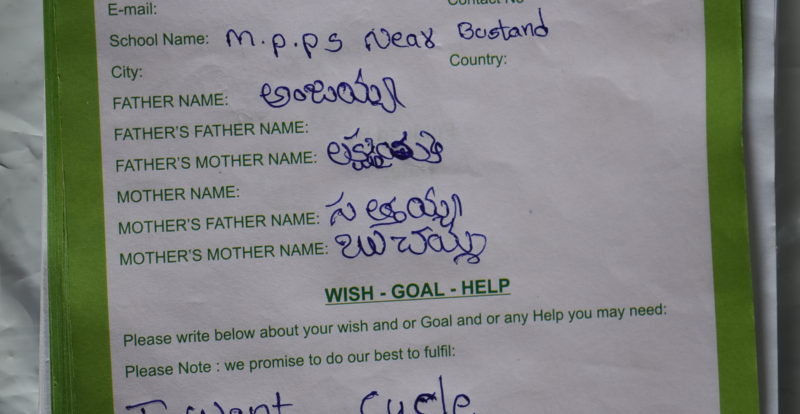 E-mail:
School Name: M.p.ps Near Bustand
City: Country:
FATHER NAME: అంజయ్య
FATHER'S FATHER NAME:
FATHER'S MOTHER NAME:
MOTHER NAME:
MOTHER'S FATHER NAME: సత్తయ్య
MOTHER'S MOTHER NAME: బుచయ్య
WISH - GOAL - HELP
Please write below about your wish and or Goal and or any Help you may need:
Please Note : we promise to do our best to fulfil:
I want cycle